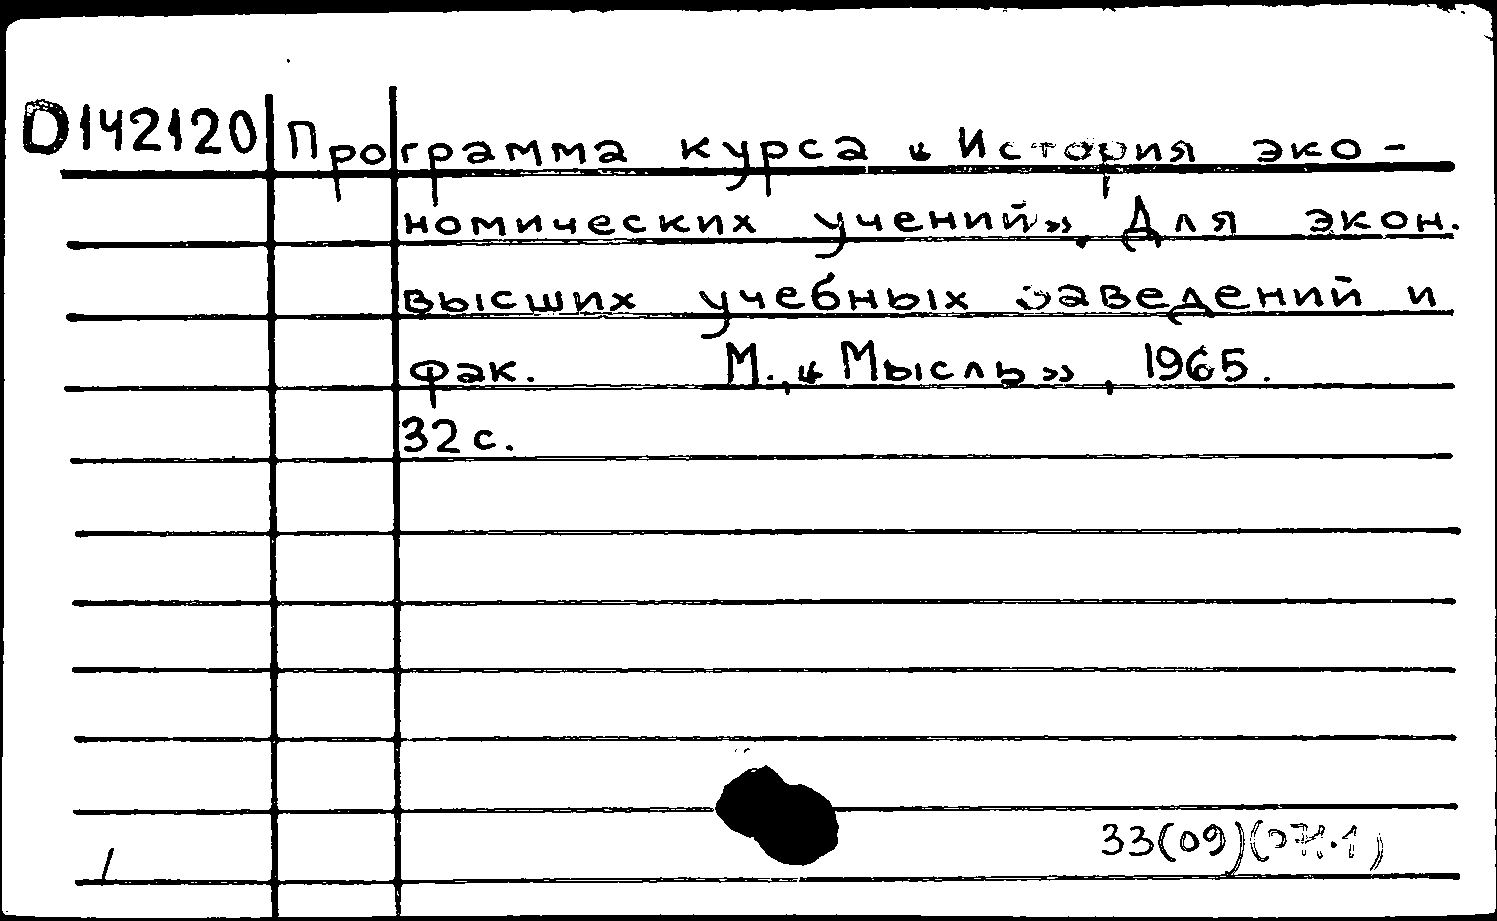 D142120 Программа курса «История эко-
номических учений». Для экон.
высших учебных заведений и
фак. М., «Мысль», 1965.
32 с.
33(09)(071.1)
1